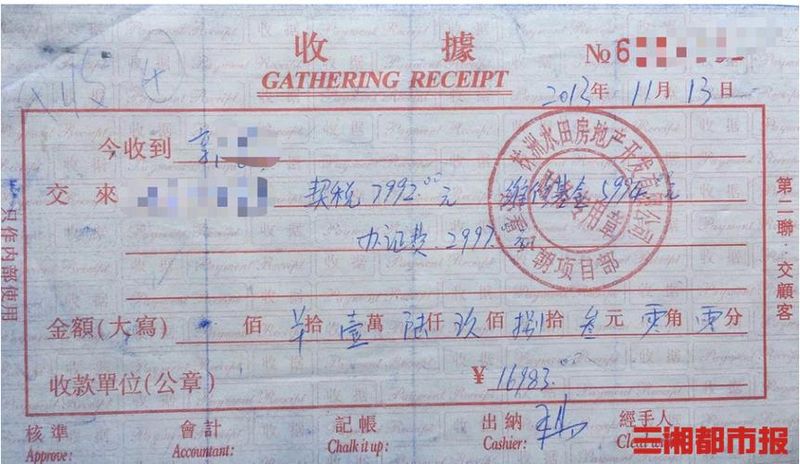 收 據
GATHERING RECEIPT
№ 6
2013年11月13日
今收到
交 來 契税7992.00元 维修基金5994元
办证费.2997.
金額(大寫) 佰 拾壹萬陆仟玖佰捌拾叁元零角零分
收款單位(公章) ¥16983.00
核準 會計 記帳 出納 經手人
Approve: Accountant: Chalk it up: Cashier:
只作内部使用
第二聯:交顧客
株洲水田房地产开发有限公司
专用章
朝项目部
三湘都市报